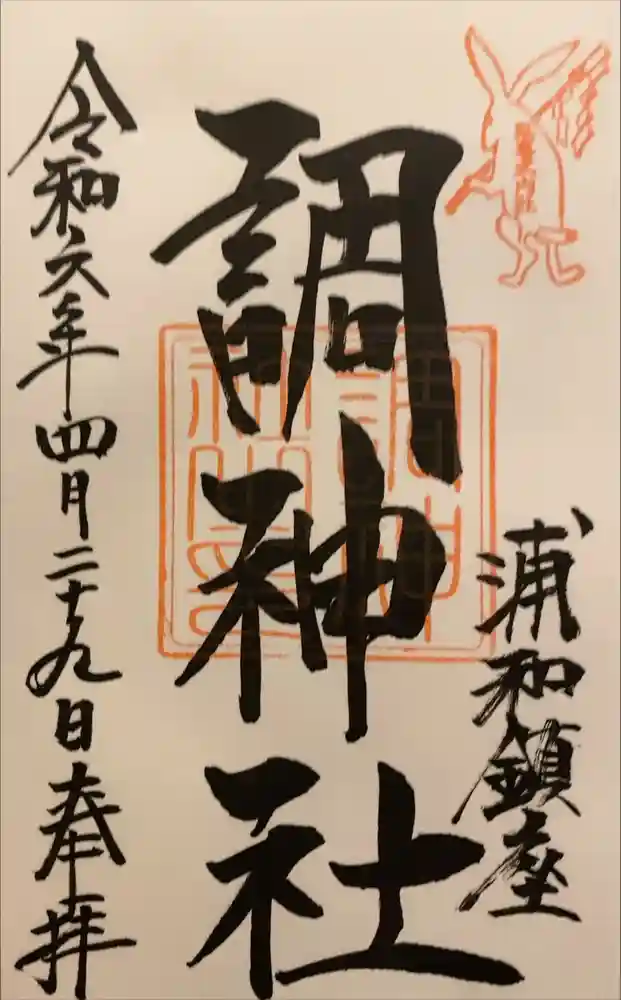 浦和鎮座
調神社
調神社之印
令和六年四月二十九日奉拝